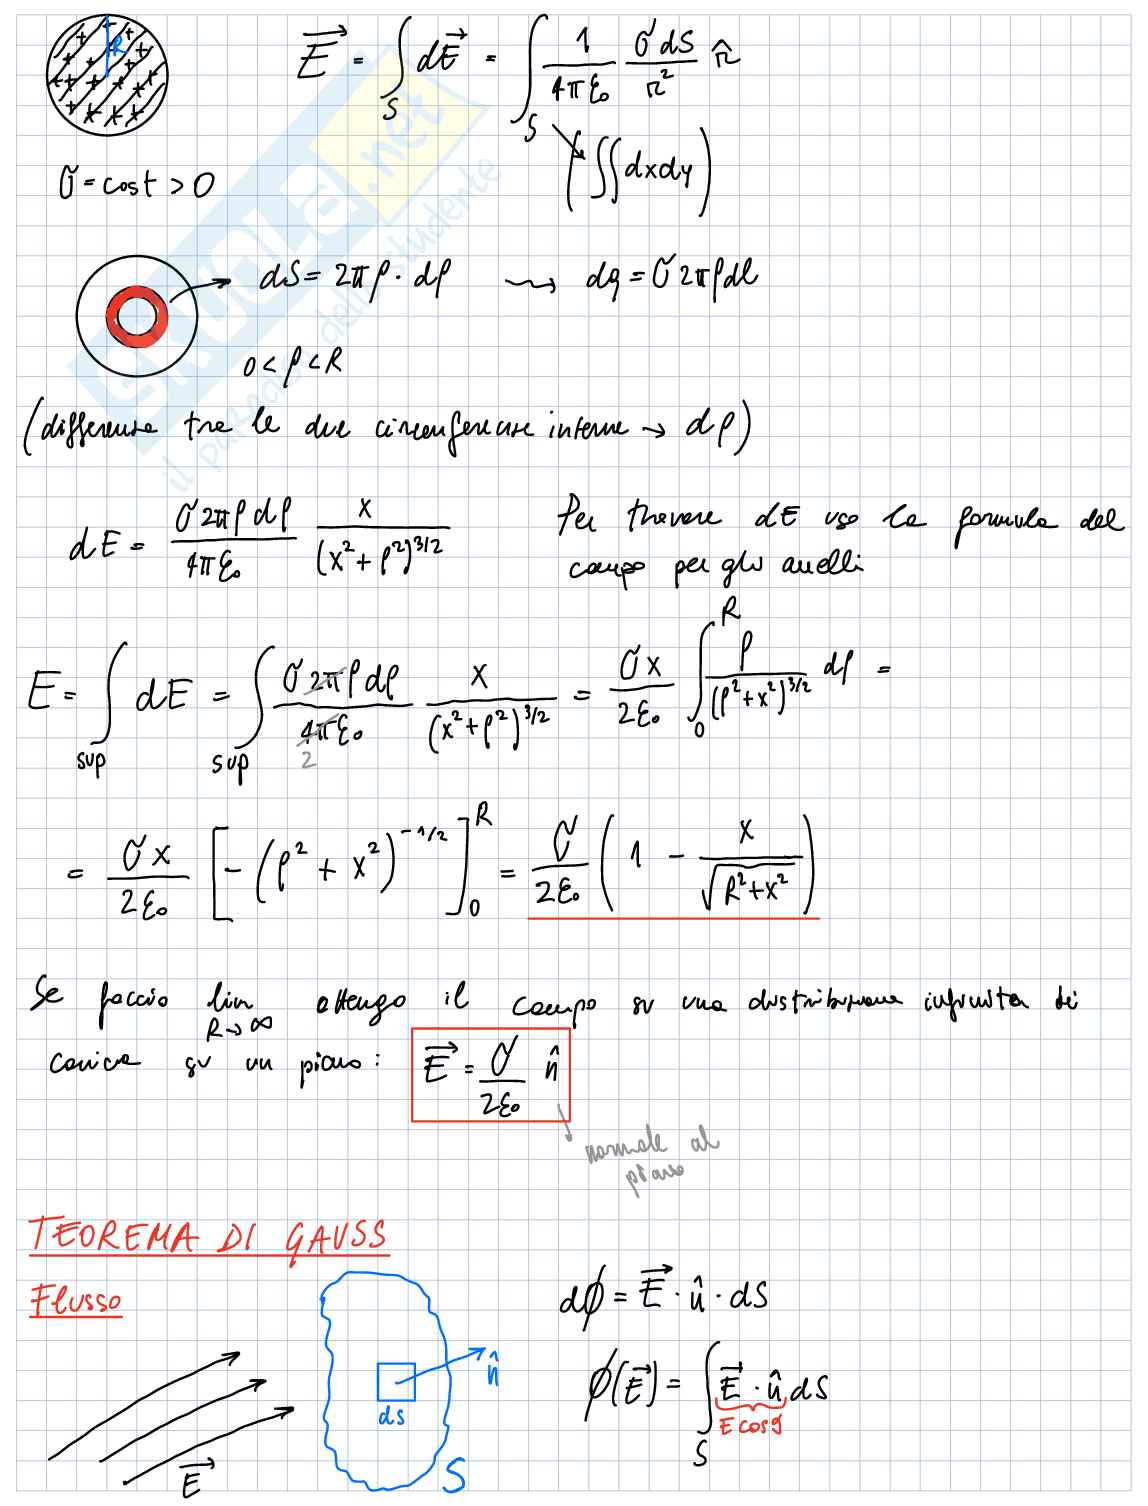 R
E⃗ = ∫_S dE⃗ = ∫_S 1/(4πε₀) σdS/r² r̂
(∬dxdy)
σ = cost > 0
dS = 2πρ · dρ ⇝ dq = σ2πρdρ
0 < ρ < R
(differenza tra le due circonferenze interne → dρ)
dE = σ2πρdρ/(4πε₀) x/(x² + ρ²)^3/2
Per trovare dE uso la formula del
campo per gli anelli
E = ∫_sup dE = ∫_sup σ2πρdρ/(4πε₀) x/(x² + ρ²)^3/2 = σx/(2ε₀) ∫_0^R ρ/(ρ² + x²)^3/2 dρ =
2
= σx/(2ε₀) [-(ρ² + x²)^-1/2]_0^R = σ/(2ε₀) (1 - x/√(R² + x²))
Se faccio lim R→∞ ottengo il campo su una distribuzione infinita di
carica su un piano: E⃗ = σ/(2ε₀) n̂
normale al
piano
TEOREMA DI GAUSS
Flusso
dϕ = E⃗ · n̂ · dS
n̂
dS
ϕ(E⃗) = ∫_S E⃗ · n̂ dS
E cosϑ
E⃗
S
SKUOLA.net
il paradiso dello studente